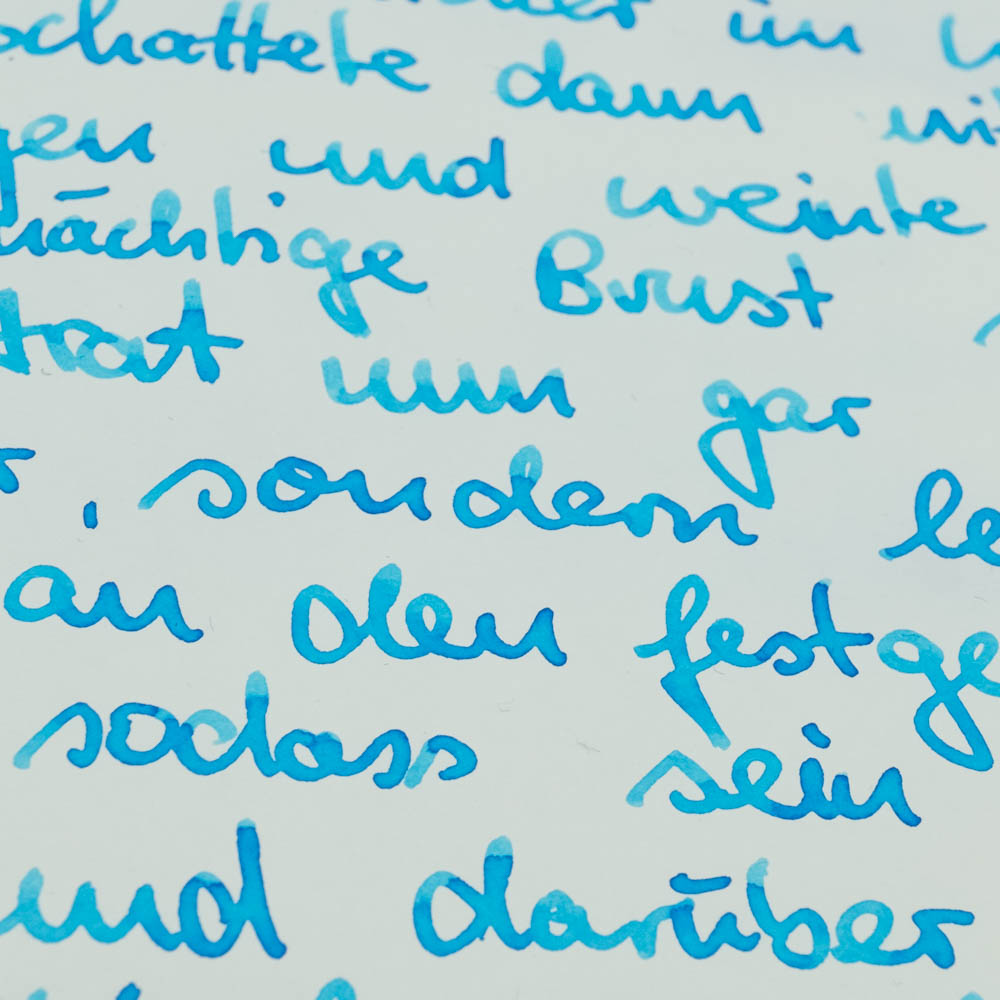 im
schattete dann
und weinte
mächtige Brust
trat nun gar
, sondern
an den festge
sodass sein
und darüber